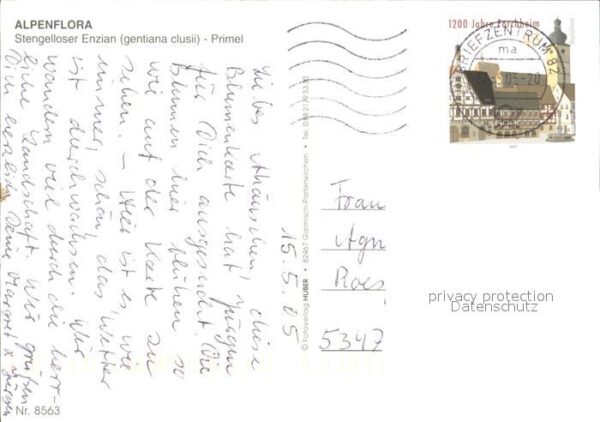 ALPENFLORA
Stengelloser Enzian (gentiana clusii) - Primel
1200 Jahre Forchheim
BRIEFZENTRUM 82
ma
05-20
Liebes Mäuschen, diese
Blumenkarte hat Jürgen
für Dich ausgesucht. Die
Blumen hier blühen so
wie auf der Karte zu
sehen. – Hier ist es wie
immer schön, das Wetter
ist durchwachsen. Wir
wandern viel durch die herr-
liche Landschaft. Wir grüßen
Dich herzlich Deine Margret x Jürgen
15.5.05
Frau
Agn
Roes
5347
© Fotoverlag HUBER • 82467 Garmisch-Partenkirchen •
privacy protection
Datenschutz
Nr. 8563